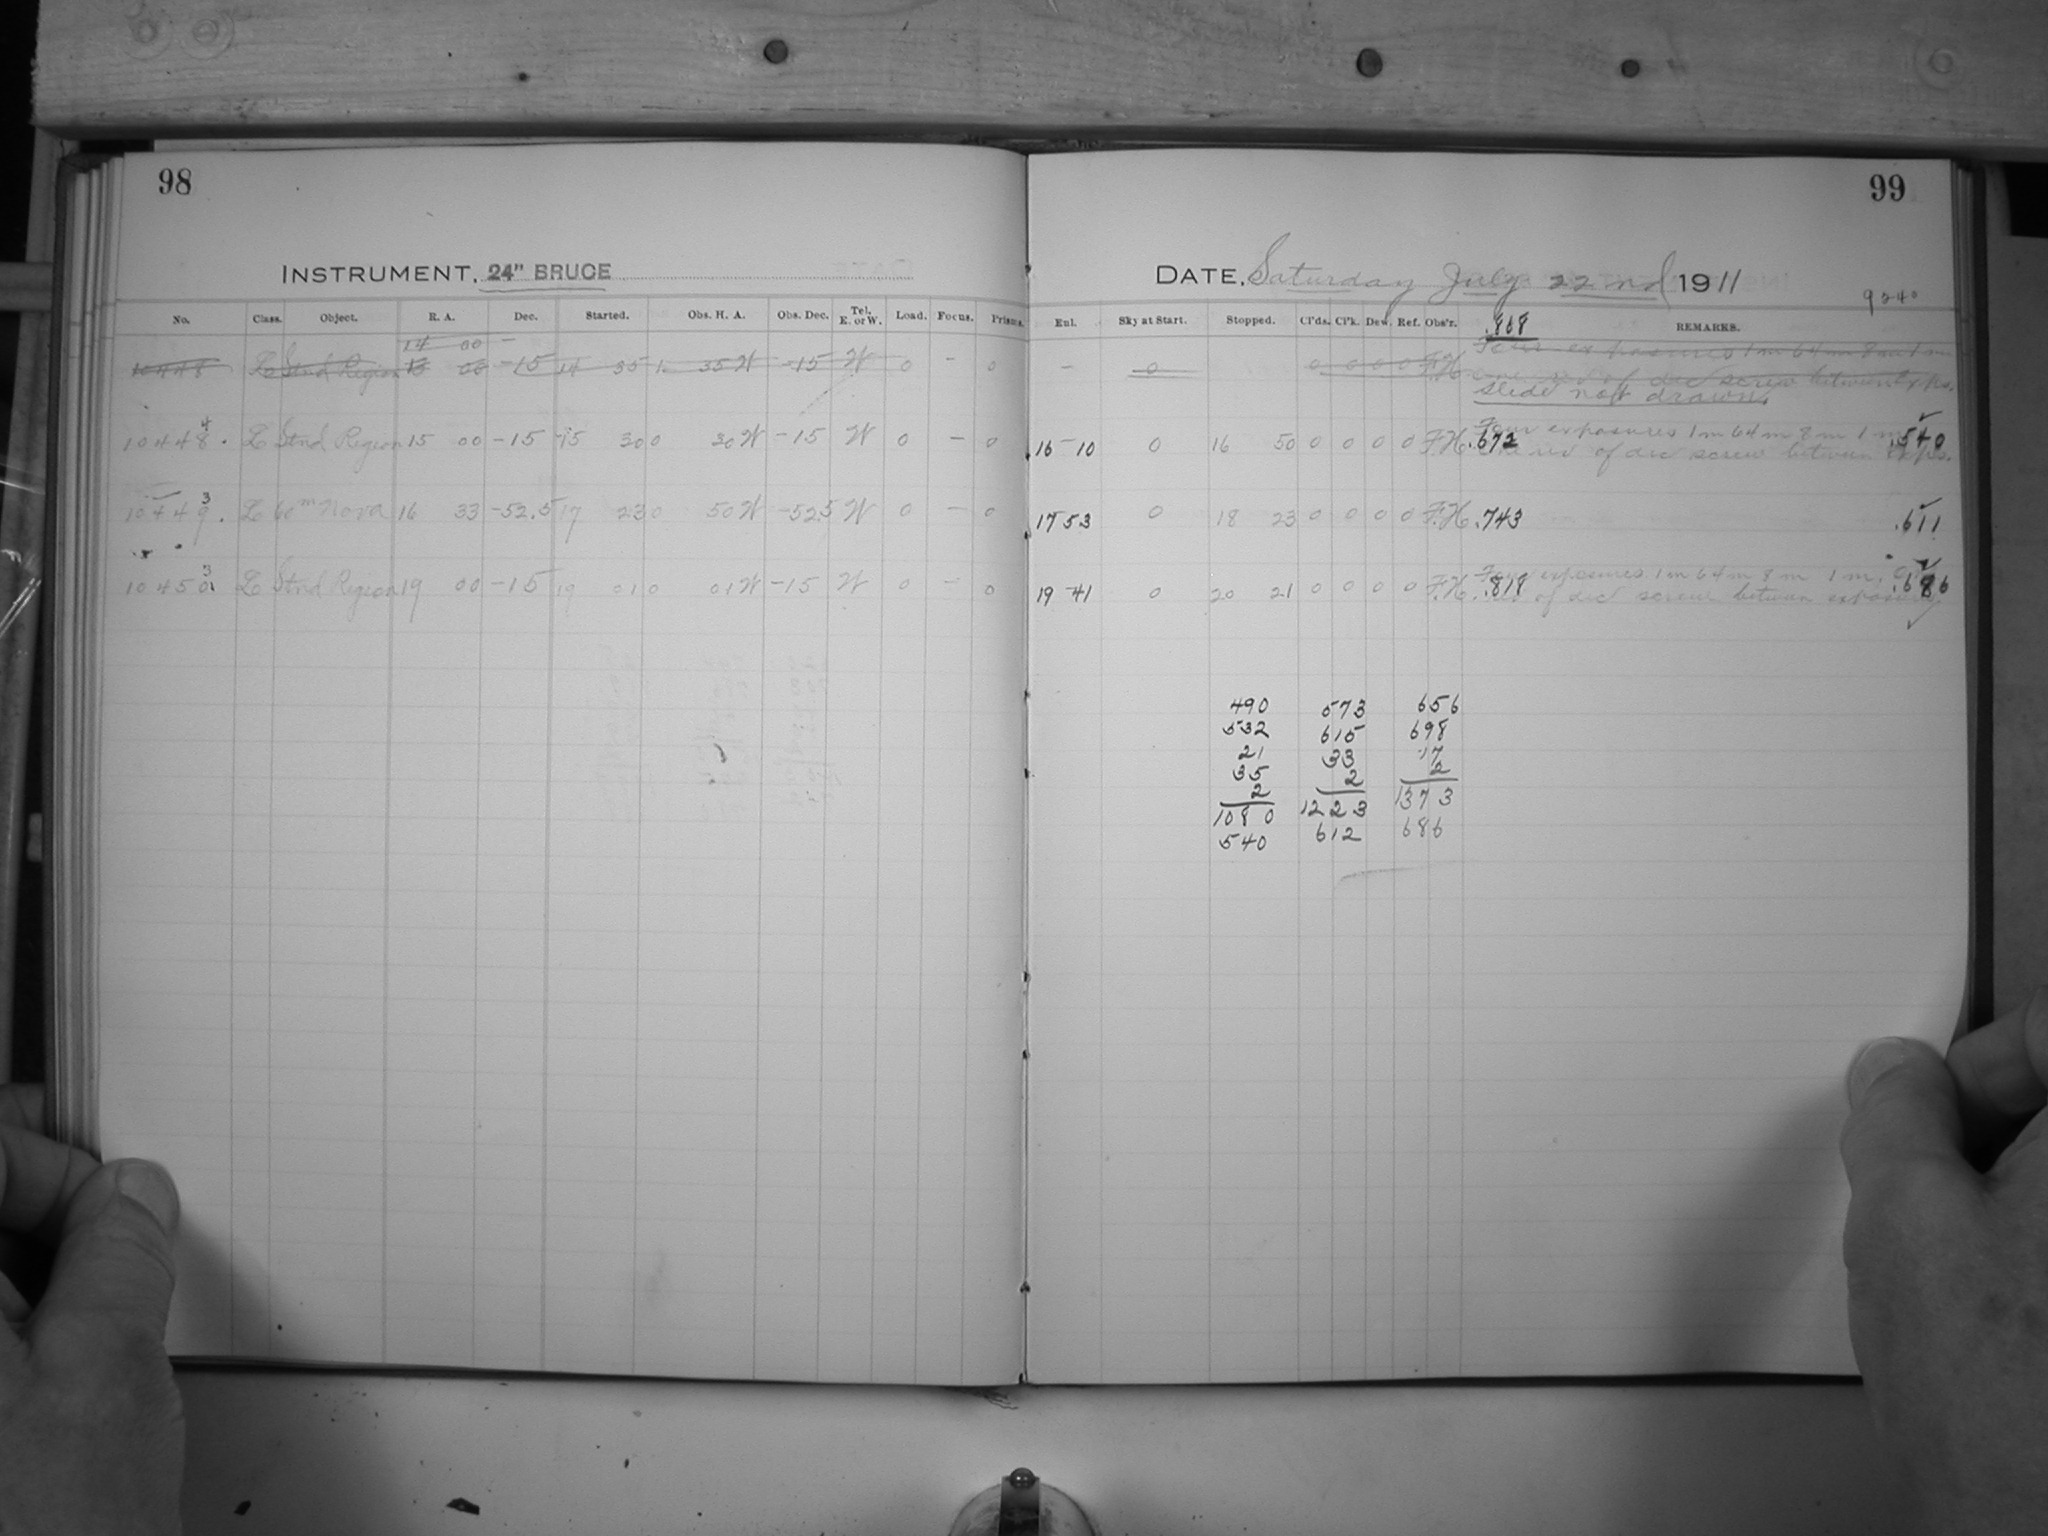 98
INSTRUMENT, 24" BRUCE
No. Class. Object. R. A. Dec. Started. Obs. H. A. Obs. Dec. Tel. E. or W. Load. Focus. Prisms.
14 00 -
10448 L Stnd Region 15 00 -15 14 35 1 35 W -15 W 0 - 0
4
10448. L Stnd Region 15 00 -15 15 30 0 30 W -15 W 0 - 0
3
10449. L 60m Nova 16 33 -52.5 17 23 0 50 W -52.5 W 0 - 0
3
10450 L Stnd Region 19 00 -15 19 01 0 01 W -15 W 0 - 0
99
DATE, Saturday July 22nd 1911
9240
Eul. Sky at Start. Stopped. Cl'ds. Cl'k. Dew. Ref. Obs'r. REMARKS.
.808
- 0 0 0 0 0 F.H. Four exposures 1m 64m 8m 1m
one rev of dec screw between exps.
slide not drawn.
16-10 0 16 50 0 0 0 0 F.H. .672 Four exposures 1m 64m 8m 1m .540
one rev of dec screw between exps.
17 53 0 18 23 0 0 0 0 F.H. .743 .611
19 41 0 20 21 0 0 0 0 F.H. .818 Four exposures 1m 64m 8m 1m. One .686
rev of dec screw between exposures
490 573 656
532 615 698
21 33 17
35 2 2
2
1080 1223 1373
540 612 686